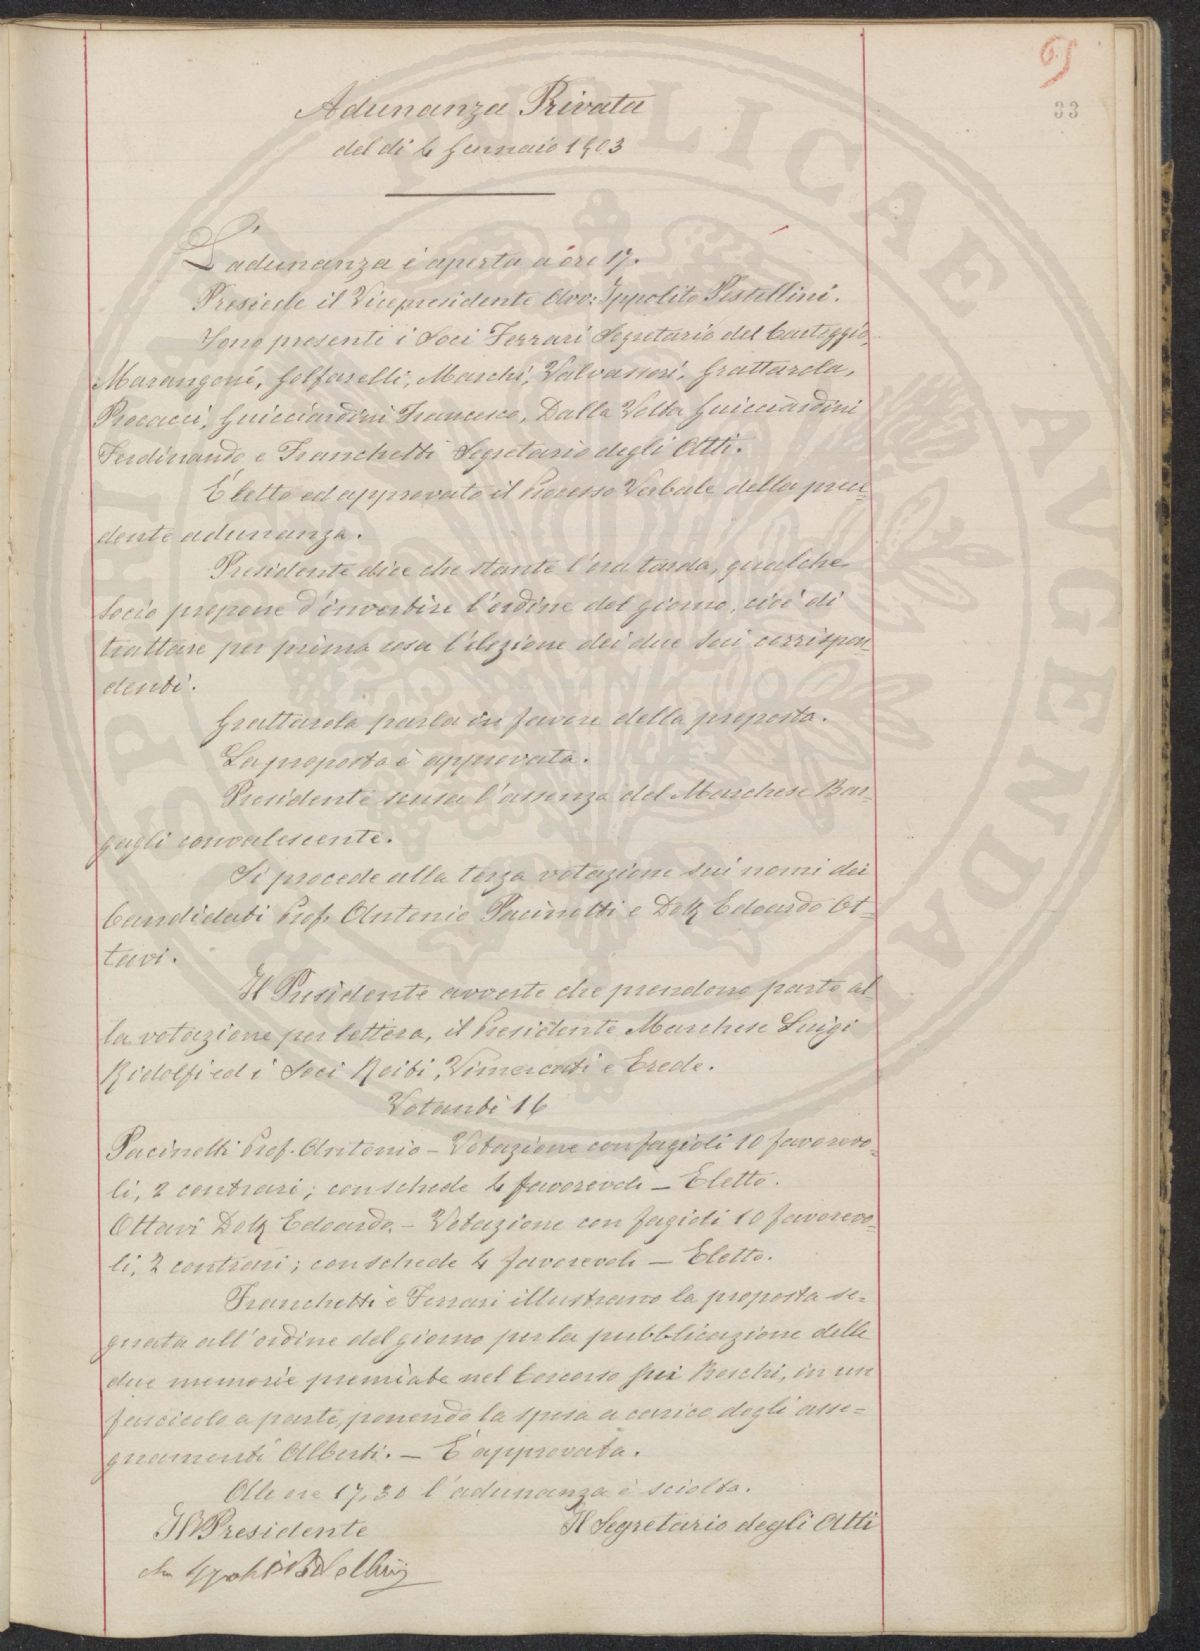 65
33
Adunanza Privata
del dì 4 Gennaio 1903
L'adunanza è aperta a ore 17.
Presiede il Vicepresidente Avv: Ippolito Pestellini.
Sono presenti i Soci Ferrari Segretario del Carteggio,
Marangoni, Golfarelli, Marchi, Valvassori, Grattarola,
Procacci, Guicciardini Francesco, Dalla Volta Guicciardini
Ferdinando e Franchetti Segretario degli Atti.
È letto ed approvato il Processo Verbale della prece=
dente adunanza.
Presidente dice che stante l'ora tarda, qualche
Socio propone d'invertire l'ordine del giorno, cioè di
trattare per prima cosa l'elezione dei due Soci corrispon=
denti.
Grattarola parla in favore della proposta.
La proposta è approvata.
Presidente scusa l'assenza del Marchese Bar=
gagli convalescente.
Si procede alla terza votazione sui nomi dei
Candidati Prof. Antonio Pacinotti e Dott. Edoardo Ot=
tavi.
Il Presidente avverte che prendono parte al=
la votazione per lettera, il Presidente Marchese Luigi
Ridolfi ed i Soci Roiti, Vimercati e Erede.
Votanti 16
Pacinotti Prof. Antonio - Votazione con fagioli 10 favorevo=
li, 2 contrari; con schede 4 favorevoli - Eletto.
Ottavi Dott. Edoardo. - Votazione con fagioli 10 favorevo=
li, 2 contrari; con schede 4 favorevoli - Eletto.
Franchetti e Ferrari illustrano la proposta se=
gnata all'ordine del giorno per la pubblicazione delle
due memorie premiate nel Concorso pei Boschi, in un
fascicolo a parte, ponendo la spesa a carico degli asse=
gnamenti Alberti. - È approvata.
Alle ore 17,30 l'adunanza è sciolta.
Il Presidente
Il Segretario degli Atti
PUBLICAE
AUGENDA